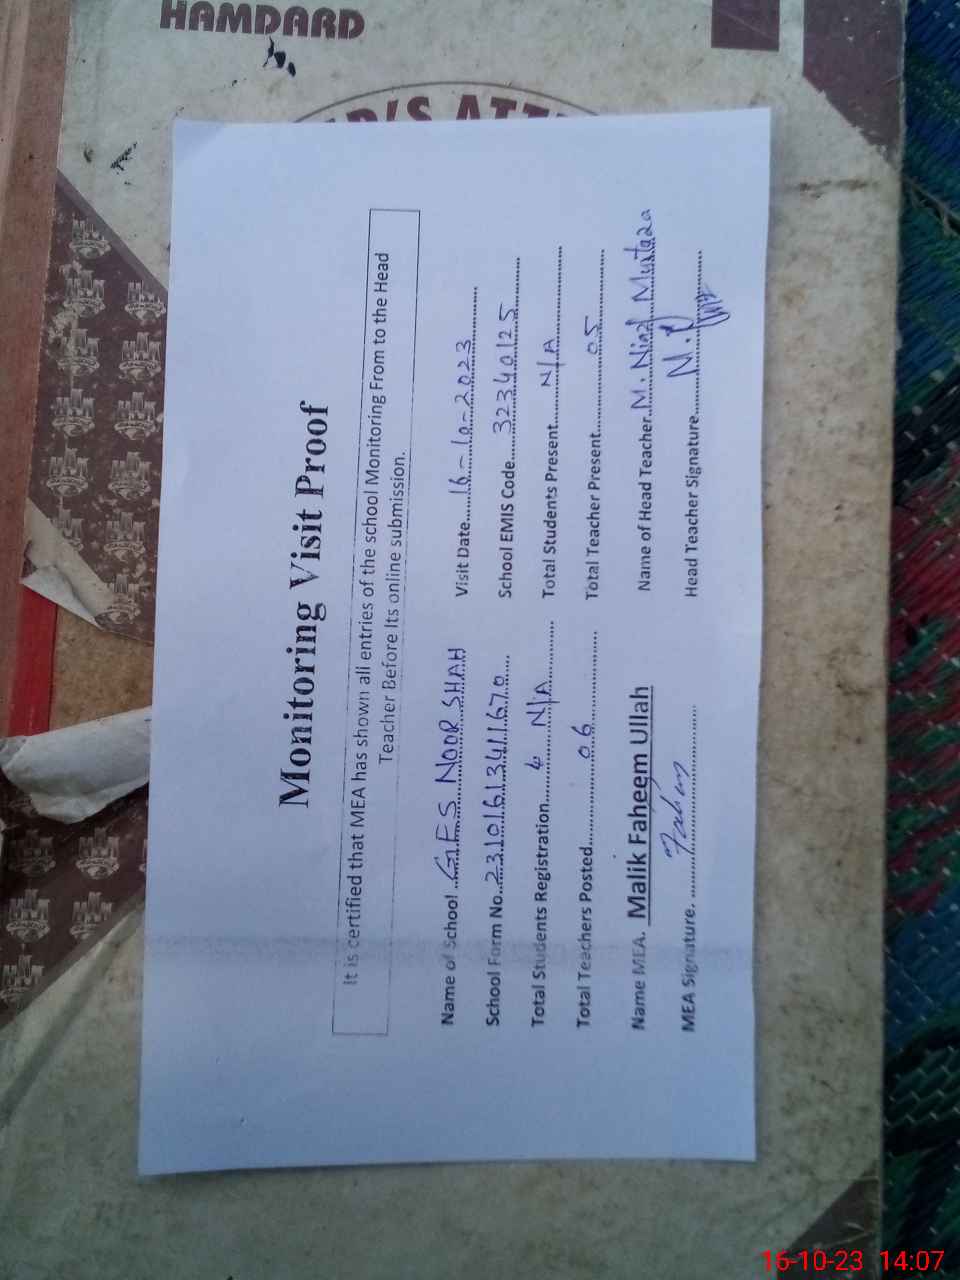 HAMDARD
Monitoring Visit Proof
It is certified that MEA has shown all entries of the school Monitoring From to the Head
Teacher Before Its online submission.
Name of School GES NOOR SHAH Visit Date 16-10-2023
School Form No. 23101613411670 School EMIS Code 32340125
Total Students Registration N/A Total Students Present N/A
Total Teachers Posted 06 Total Teacher Present 05
Name MEA. Malik Faheem Ullah Name of Head Teacher. M. Niaz Murtaza
MEA Signature. Fahim Head Teacher Signature
16-10-23 14:07